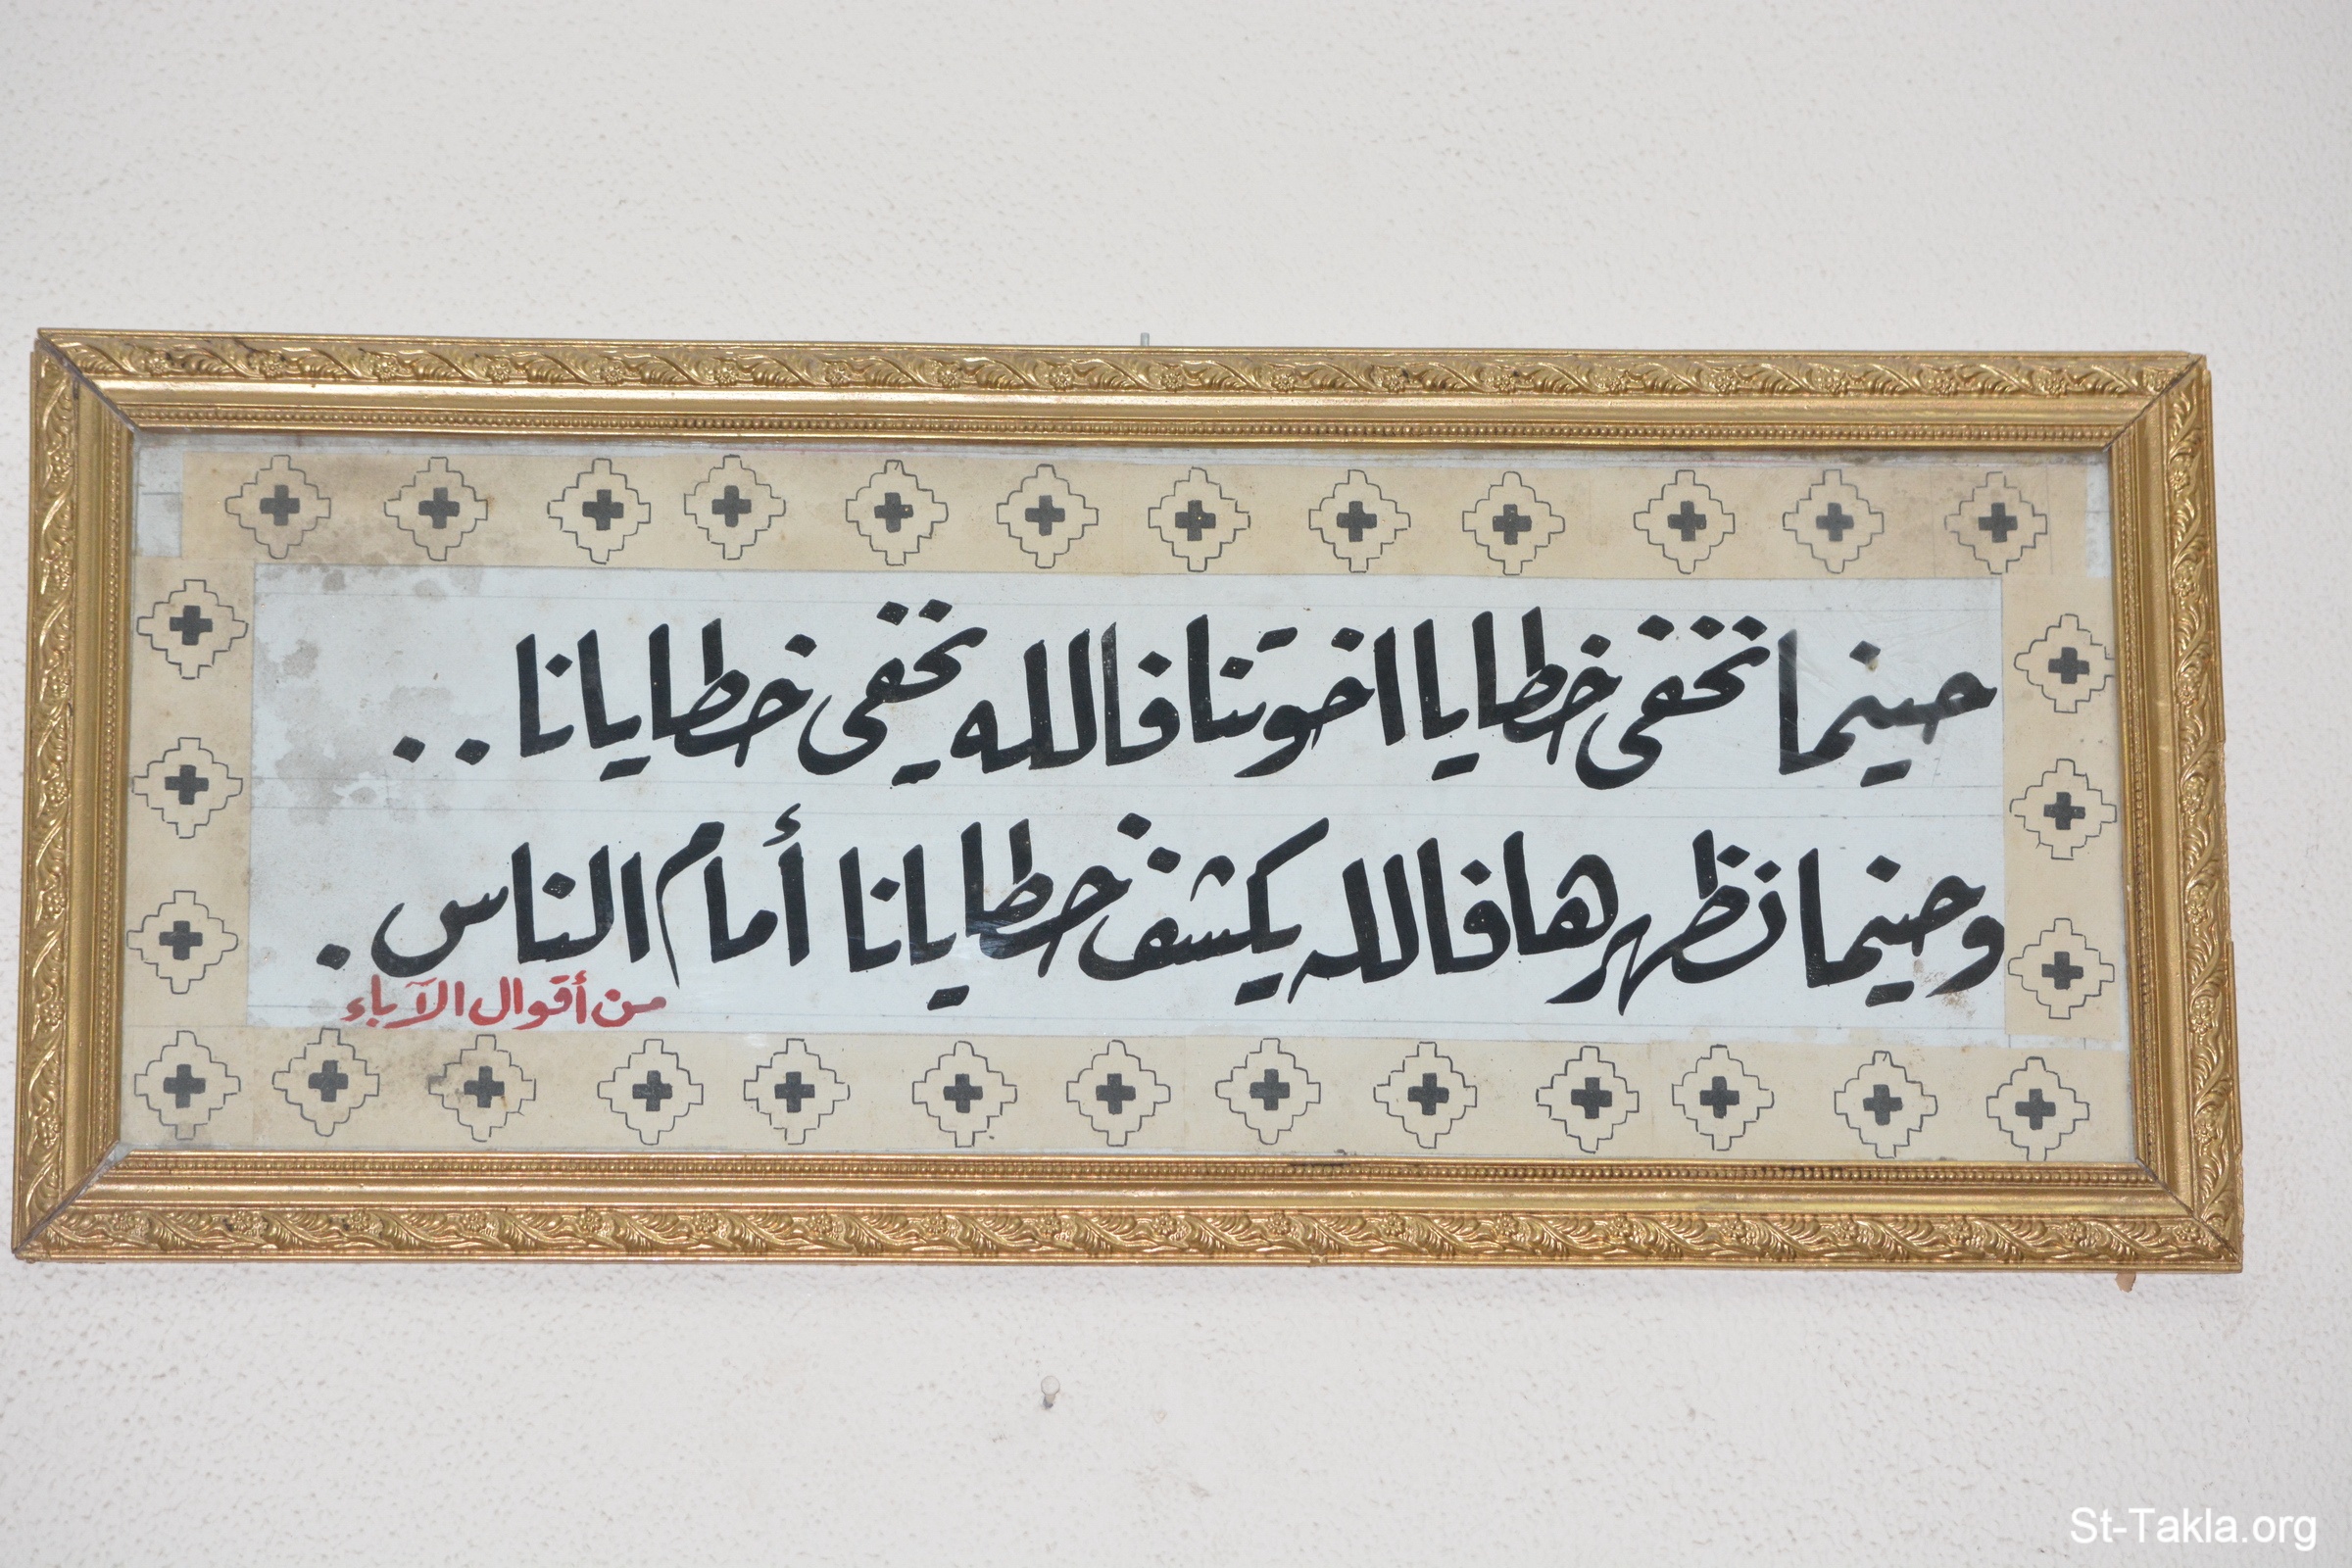 حينما نخفى خطايا اخوتنا فالله يخفى خطايانا ..
وحينما نظهرها فالله يكشف خطايانا أمام الناس .
من أقوال الآباء
St-Takla.org